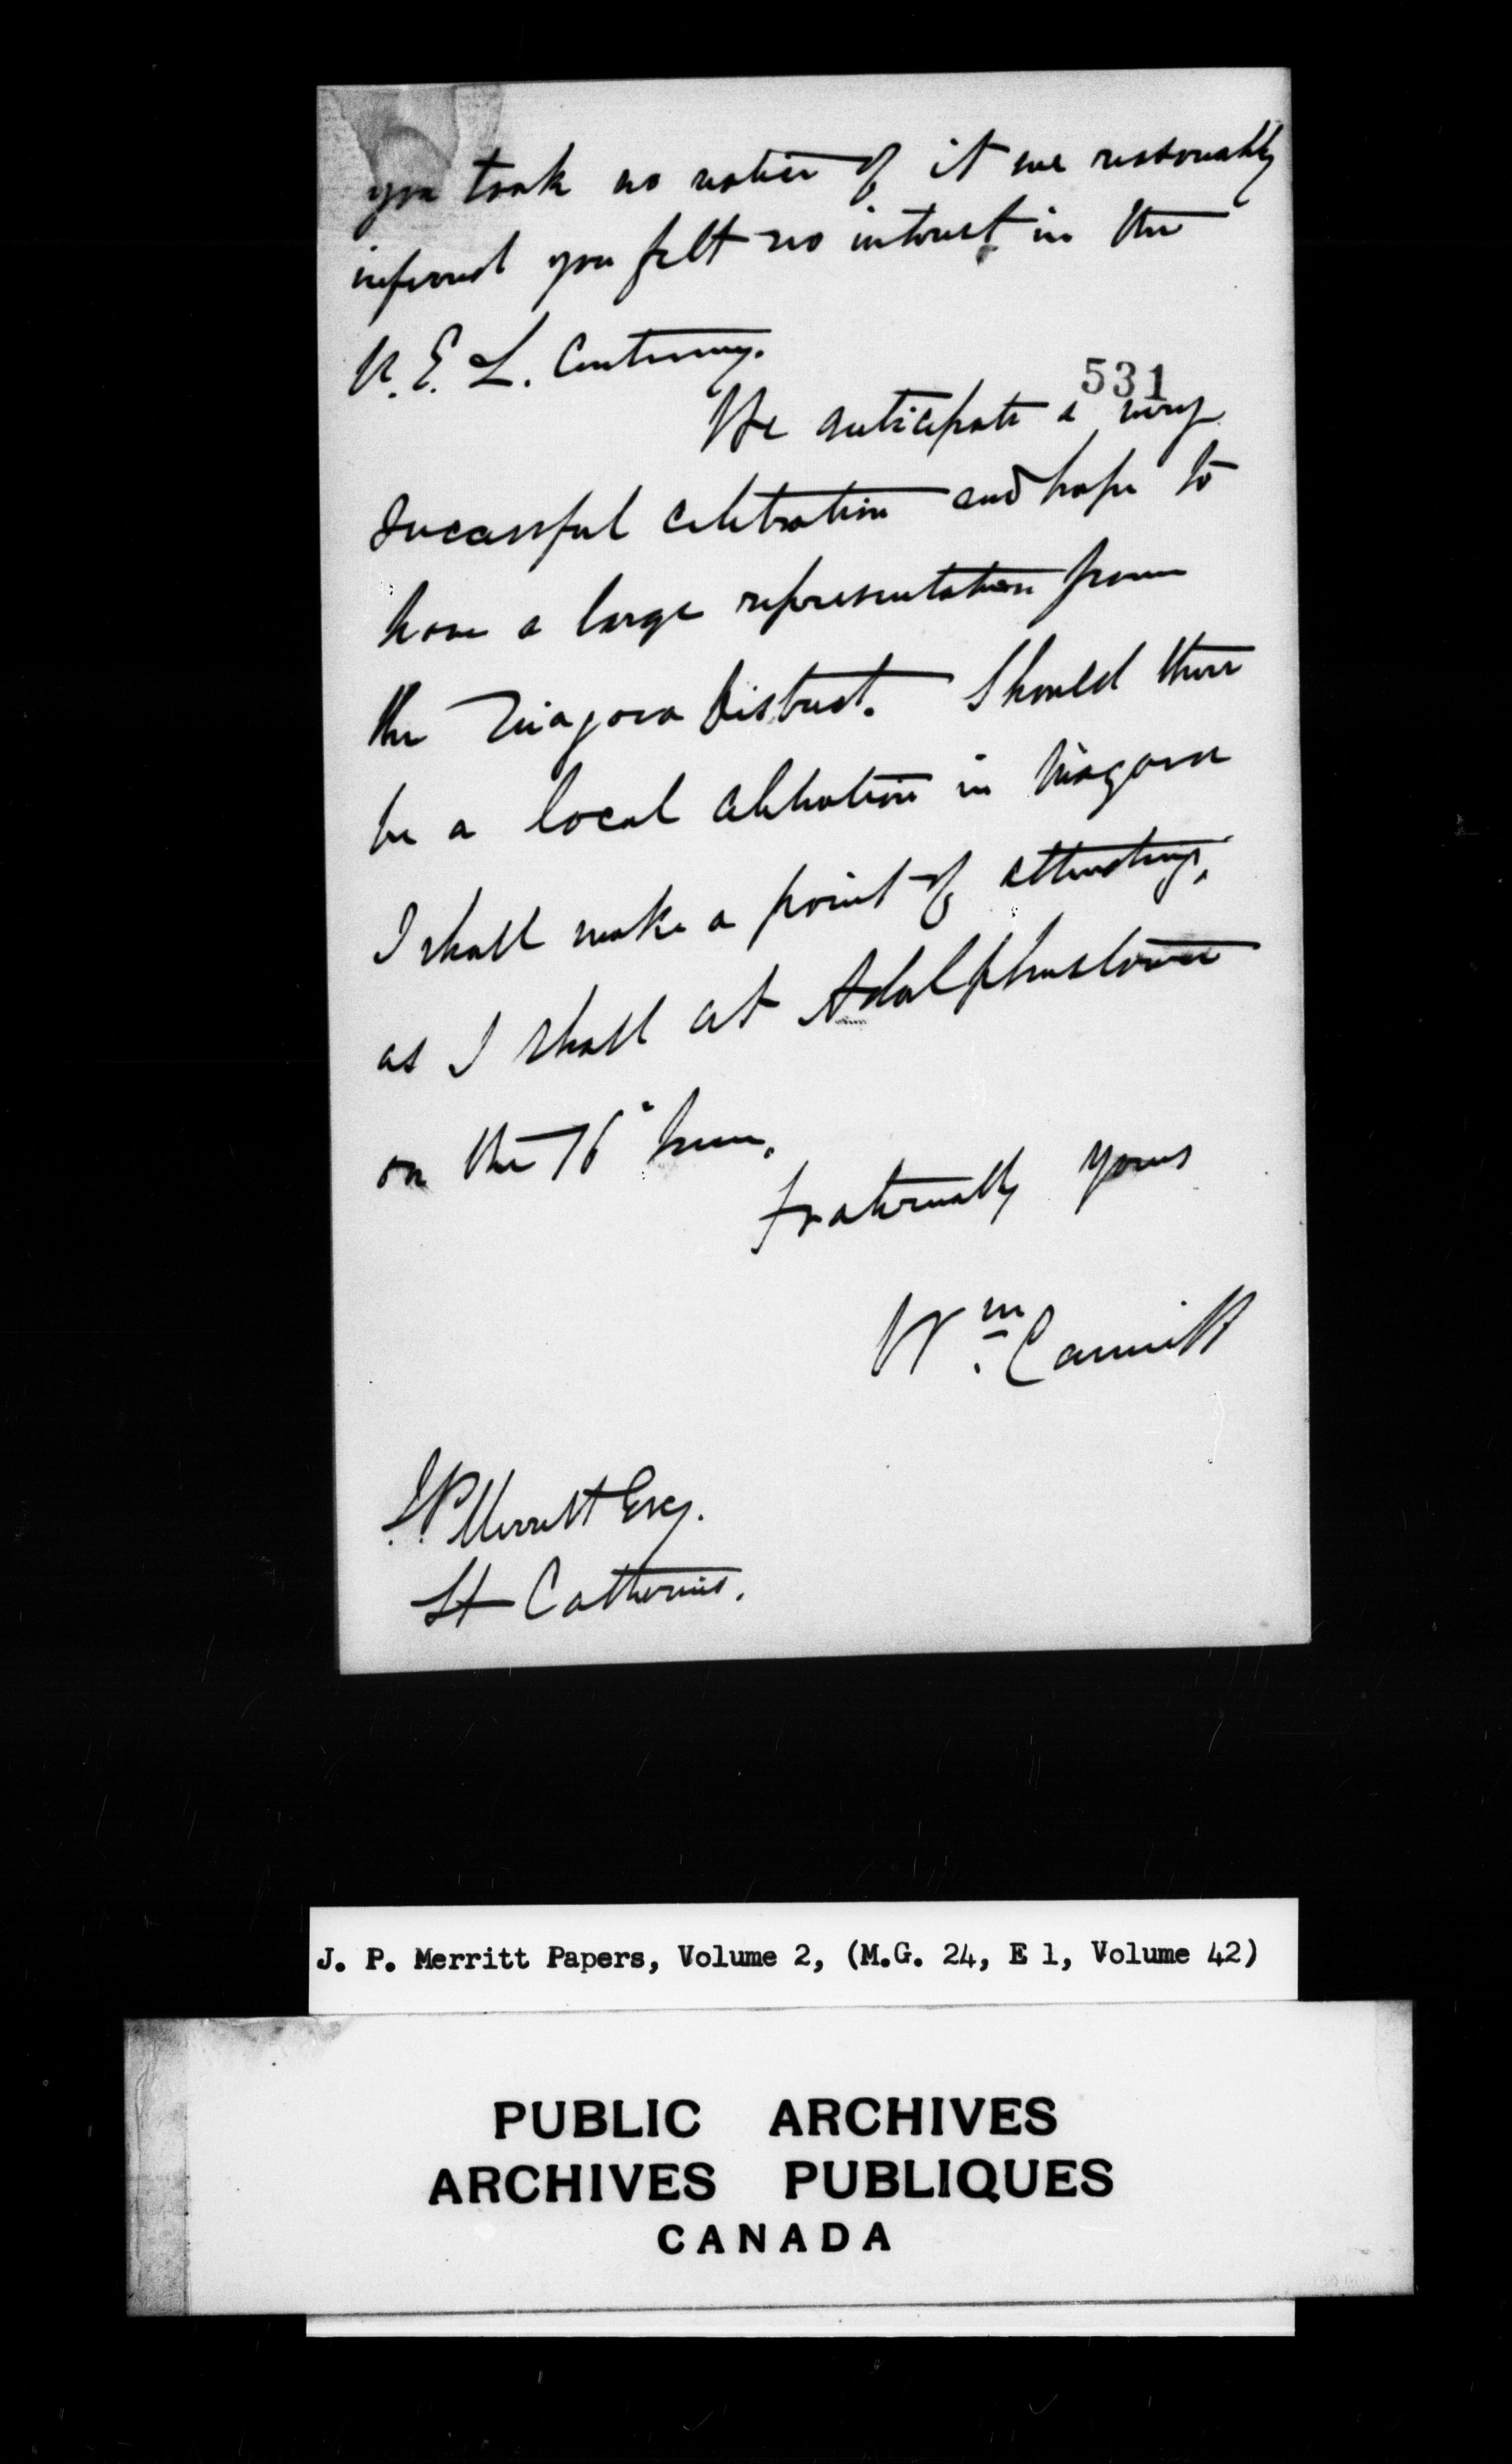 you took no notice of it we reasonably
inferred you felt no interest in the
U. E. L. Centenary.
531
We anticipate a very
successful celebration and hope to
have a large representation from
the Niagara District. Should there
be a local celebration in Niagara
I shall make a point of attending,
as I shall at Adolphustown
on the 16" June.
Fraternally yours
Wm. Canniff
J.P. Merritt Esq.
St Catherines.
J. P. Merritt Papers, Volume 2, (M.G. 24, E 1, Volume 42)
PUBLIC ARCHIVES
ARCHIVES PUBLIQUES
CANADA